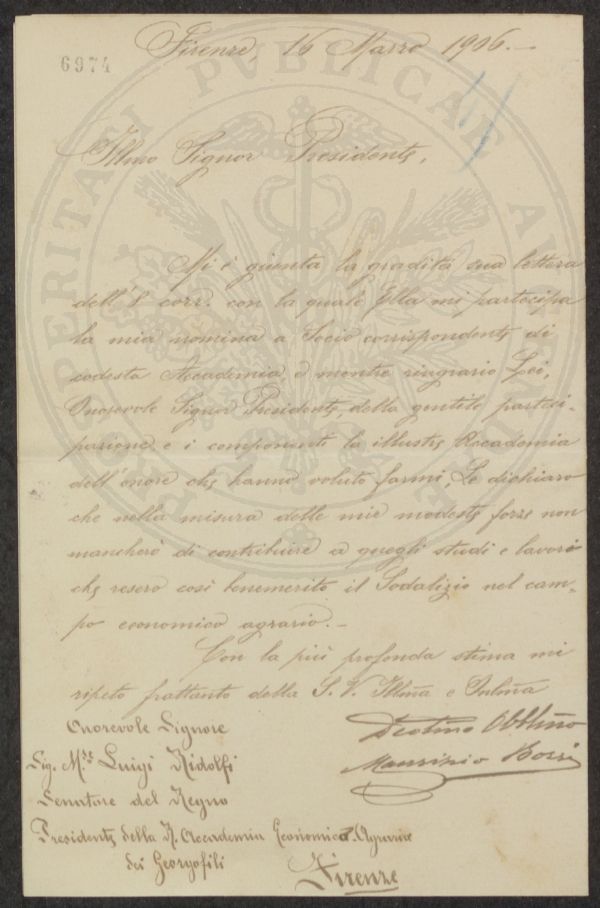 Firenze, 16 Marzo 1906.-
6974
PROSPERITATI PVBLICAE AVGENDAE
Illmo Signor Presidente,
Mi è giunta la gradita sua lettera
dell'8 corr. con la quale Ella mi partecipa
la mia nomina a Socio corrispondente di
codesta Accademia, e mentre ringrazio Lei,
Onorevole Signor Presidente, della gentile parteci-
pazione e i componenti la illustre Accademia
dell'onore che hanno voluto farmi, Le dichiaro
che nella misura delle mie modeste forze non
mancherò di contribuire a quegli studi e lavori
che resero così benemerito il Sodalizio nel cam-
po economico agrario.-
Con la più profonda stima mi
ripeto frattanto della S. V. Illma e
Devotmo Obblmo
Maurizio Bossi
Onorevole Signore
Sig. M.se Luigi Ridolfi
Senatore del Regno
Presidente della R. Accademia Economico-Agraria
dei Georgofili
Firenze